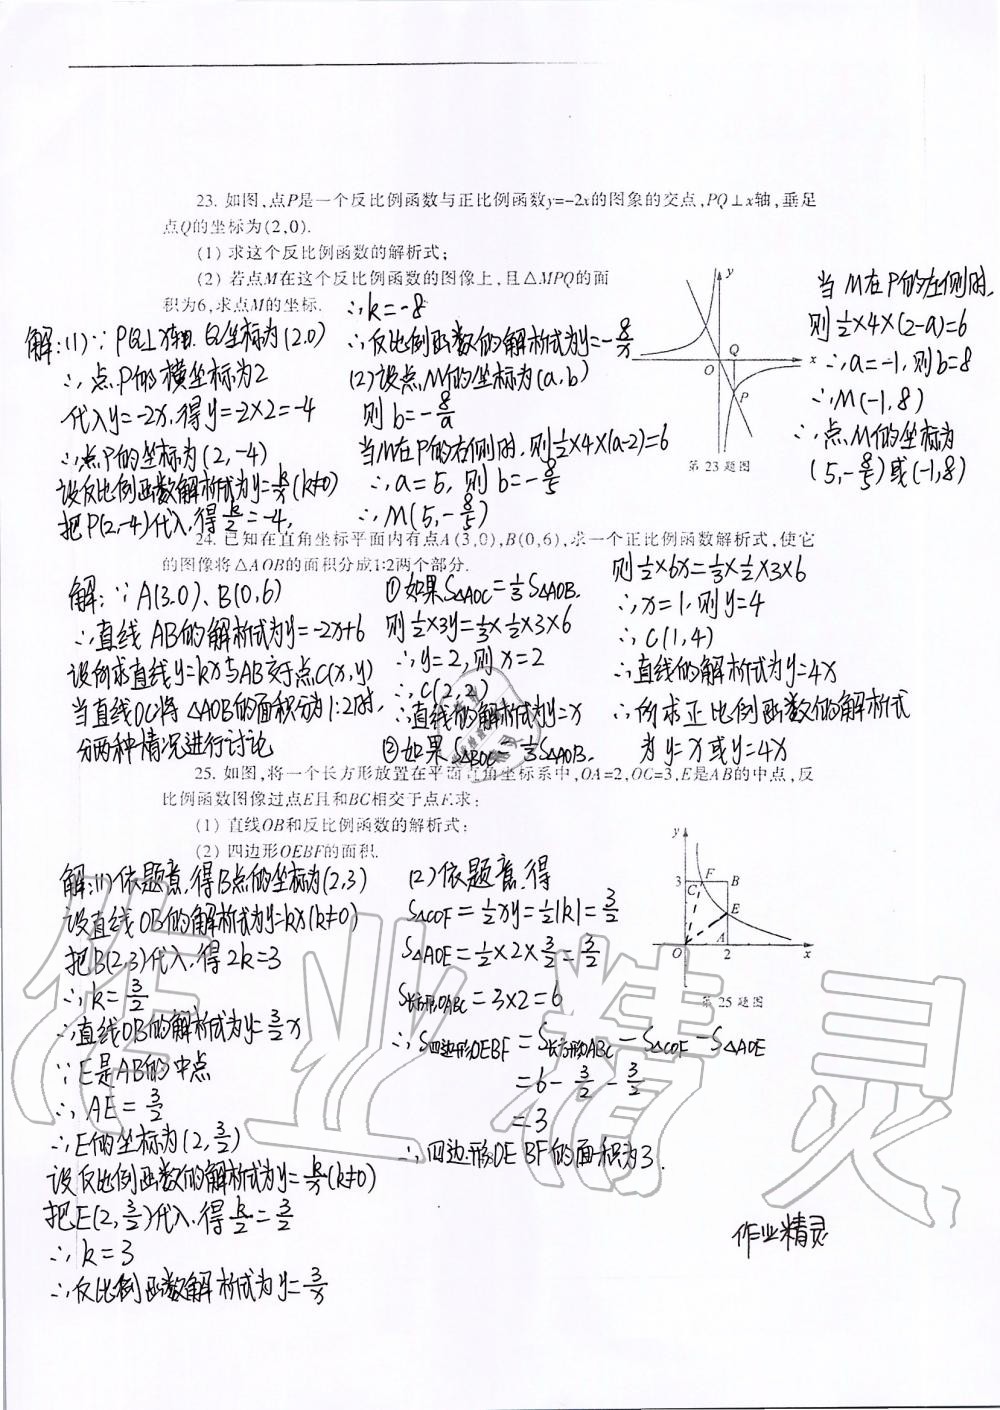 23. 如图,点P是一个反比例函数与正比例函数y=-2x的图象的交点,PQ⊥x轴,垂足
点Q的坐标为(2,0).
(1) 求这个反比例函数的解析式;
(2) 若点M在这个反比例函数的图像上,且△MPQ的面
积为6,求点M的坐标.
解:(1)∵PQ⊥x轴. Q坐标为(2.0)
∴点P的横坐标为2
代入y=-2x,得y=-2×2=-4
∴点P的坐标为(2,-4)
设反比例函数解析式为y=k/x(k≠0)
把P(2,-4)代入,得k/2=-4,
∴k=-8
∴反比例函数的解析式为y=-8/x
(2)设点M的坐标为(a,b)
则b=-8/a
当M在P的右侧时,则1/2×4×(a-2)=6
∴a=5, 则b=-8/5
∴M(5,-8/5)
y
Q
O
x
P
第23题图
当M在P的左侧时,
则1/2×4×(2-a)=6
∴a=-1,则b=8
∴M(-1,8)
∴点M的坐标为
(5,-8/5)或(-1,8)
24. 已知在直角坐标平面内有点A(3,0),B(0,6),求一个正比例函数解析式,使它
的图像将△AOB的面积分成1:2两个部分.
解:∵A(3.0)、B(0,6)
∴直线AB的解析式为y=-2x+6
设所求直线y=kx与AB交于点C(x,y)
当直线OC将△AOB的面积分为1:2时,
分两种情况进行讨论
①如果S△AOC=1/3S△AOB.
则1/2×3y=1/3×1/2×3×6
∴y=2,则x=2
∴C(2,2)
∴直线的解析式为y=x
②如果S△BOC=1/3S△AOB.
则1/2×6x=1/3×1/2×3×6
∴x=1,则y=4
∴C(1,4)
∴直线的解析式为y=4x
∴所求正比例函数的解析式
为y=x或y=4x
25. 如图,将一个长方形放置在平面直角坐标系中,OA=2,OC=3,E是AB的中点,反
比例函数图像过点E且和BC相交于点F.求:
(1) 直线OB和反比例函数的解析式;
(2) 四边形OEBF的面积.
解:(1)依题意,得B点的坐标为(2,3)
设直线OB的解析式为y=kx(k≠0)
把B(2,3)代入,得2k=3
∴k=3/2
∴直线OB的解析式为y=3/2x
∵E是AB的中点
∴AE=3/2
∴E的坐标为(2,3/2)
设反比例函数的解析式为y=k/x(k≠0)
把E(2,3/2)代入,得k/2=3/2
∴k=3
∴反比例函数解析式为y=3/x
(2)依题意,得
S△COF=1/2xy=1/2|k|=3/2
S△AOE=1/2×2×3/2=3/2
S长方形OABC=3×2=6
∴S四边形OEBF=S长方形OABC-S△COF-S△AOE
=6-3/2-3/2
=3
∴四边形OEBF的面积为3.
y
3
C
F
B
E
O
A
2
x
第25题图
作业精灵
作业精灵